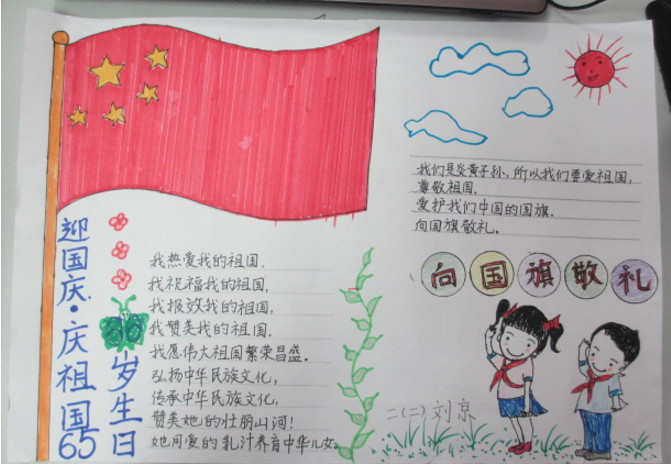 迎国庆·庆祖国65
岁生日
我热爱我的祖国.
我祝福我的祖国,
我报效我的祖国,
我赞美我的祖国.
我愿伟大祖国繁荣昌盛。
弘扬中华民族文化,
传承中华民族文化,
赞美她的壮丽山河!
她用爱的乳汁养育中华儿女。
我们是炎黄子孙,所以我们要爱祖国,
尊敬祖国.
爱护我们中国的国旗.
向国旗敬礼。
向国旗敬礼
二(二)刘京